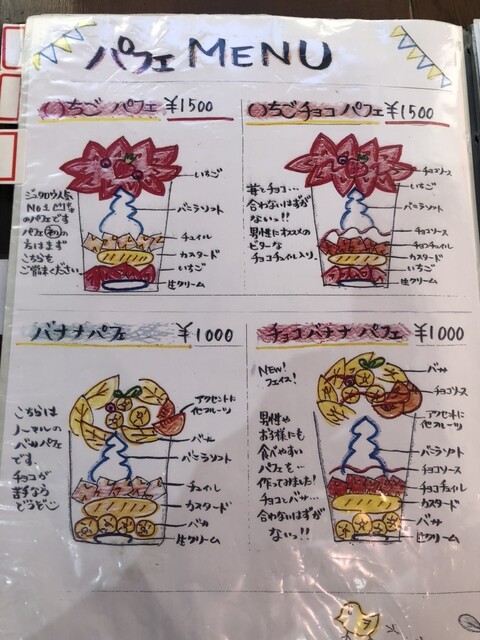 パフェ MENU
いちご パフェ ¥1500
いちご
バニラソフト
チュイル
カスタード
いちご
生クリーム
人気
No1
のパフェです
パフェ初の
方はまず
こちらを
ご賞味ください
いちごチョコ パフェ ¥1500
チョコソース
いちご
バニラソフト
チョコソース
チョコチュイル
カスタード
いちご
生クリーム
苺とチョコ…
合わないはずが
ない!!
男性にオススメの
ビターな
チョコチュイル入り。
バナナパフェ ¥1000
アクセントに
他フルーツ
バナナ
バニラソフト
チュイル
カスタード
バナナ
生クリーム
こちらは
ノーマルの
バナナパフェ
です
チョコが
苦手なら
どうぞ
チョコバナナ パフェ ¥1000
バナナ
チョコソース
アクセントに
他フルーツ
バニラソフト
チョコソース
チョコチュイル
カスタード
バナナ
生クリーム
NEW!
フェイス!
男性や
お子様にも
食べやすい
パフェを…
作ってみました!
チョコとバナナ…
合わないはずが
ないっ!!